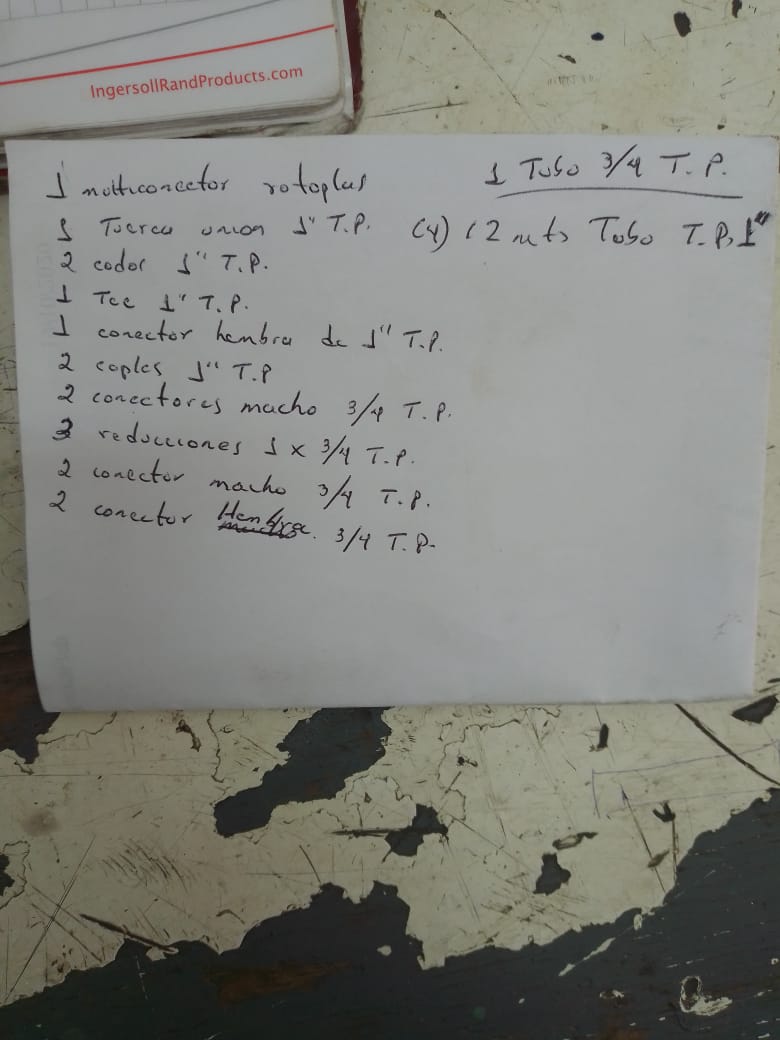 IngersollRandProducts.com
1 multiconector rotoplas
1 Tuerca union 1" T.P.
2 codos 1" T.P.
1 Tee 1" T.P.
1 conector hembra de 1" T.P.
2 coples 1" T.P
2 conectores macho 3/4 T.P.
3 reducciones 1 x 3/4 T.P.
2 conector macho 3/4 T.P.
2 conector Hembra. 3/4 T.P.
1 Tubo 3/4 T.P.
(4) 12 mts Tubo T.P. 1"